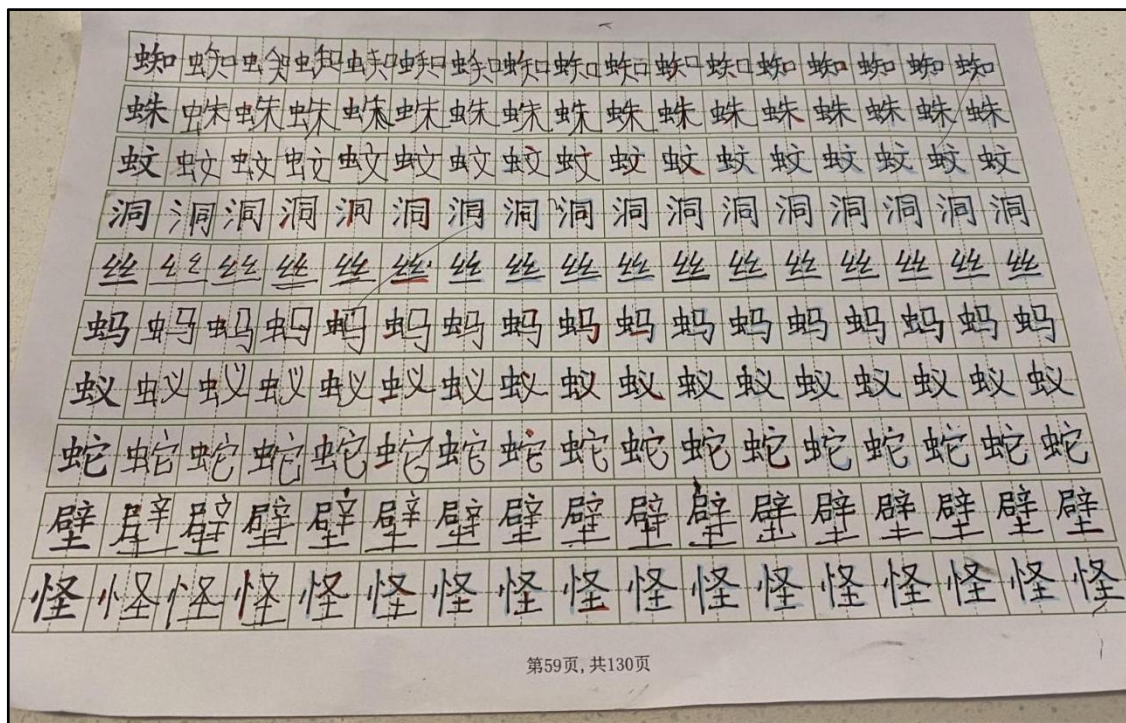 蜘蜘蜘蜘蜘蜘蜘蜘蜘蜘蜘蜘蜘蜘蜘蜘蜘
蛛蛛蛛蛛蛛蛛蛛蛛蛛蛛蛛蛛蛛蛛蛛蛛蛛
蚊蚊蚊蚊蚊蚊蚊蚊蚊蚊蚊蚊蚊蚊蚊蚊蚊
洞洞洞洞洞洞洞洞洞洞洞洞洞洞洞洞洞
丝丝丝丝丝丝丝丝丝丝丝丝丝丝丝丝丝
蚂蚂蚂蚂蚂蚂蚂蚂蚂蚂蚂蚂蚂蚂蚂蚂蚂
蚁蚁蚁蚁蚁蚁蚁蚁蚁蚁蚁蚁蚁蚁蚁蚁蚁
蛇蛇蛇蛇蛇蛇蛇蛇蛇蛇蛇蛇蛇蛇蛇蛇蛇
壁壁壁壁壁壁壁壁壁壁壁壁壁壁壁壁壁
怪怪怪怪怪怪怪怪怪怪怪怪怪怪怪怪怪
第59页,共130页